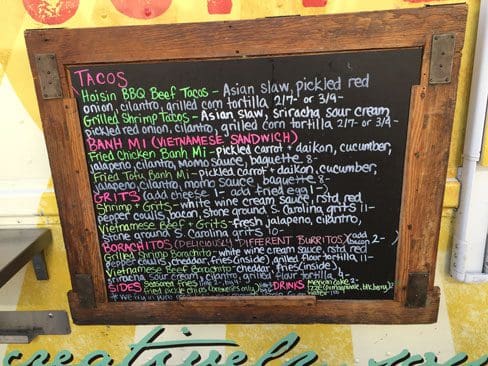 TACOS
Hoisin BBQ Beef Tacos - Asian slaw, pickled red
onion, cilantro, grilled corn tortilla 2/7- or 3/9-
Grilled Shrimp Tacos - Asian slaw, sriracha sour cream
pickled red onion, cilantro, grilled corn tortilla 2/7- or 3/9-
BANH MI (VIETNAMESE SANDWICH)
Fried Chicken Banh Mi - pickled carrot + daikon, cucumber,
jalapeno, cilantro, momo sauce, baguette 8-
Fried Tofu Banh Mi - pickled carrot + daikon, cucumber,
jalapeno, cilantro, momo sauce, baguette 8-
GRITS (add cheese 1- add fried egg 1-)
Shrimp + Grits - white wine cream sauce, rstd red
pepper coulis, bacon, stone ground S. Carolina grits 11-
Vietnamese Beef + Grits - fresh jalapeno, cilantro,
stone ground S. Carolina grits 10-
BORACHITOS (DELICIOUSLY DIFFERENT BURRITOS) (add bacon 2-)
Grilled Shrimp Borachito - white wine cream sauce, rstd red
pepper coulis, cheddar, fries (inside), grilled flour tortilla, 11-
Vietnamese Beef Borachito - cheddar, fries (inside)
sriracha sour cream, cilantro, grilled flour tortilla,
SIDES Seasoned fries DRINKS Mexican Coke 3-
Fried pickle chips
*We fry in pure
creatively